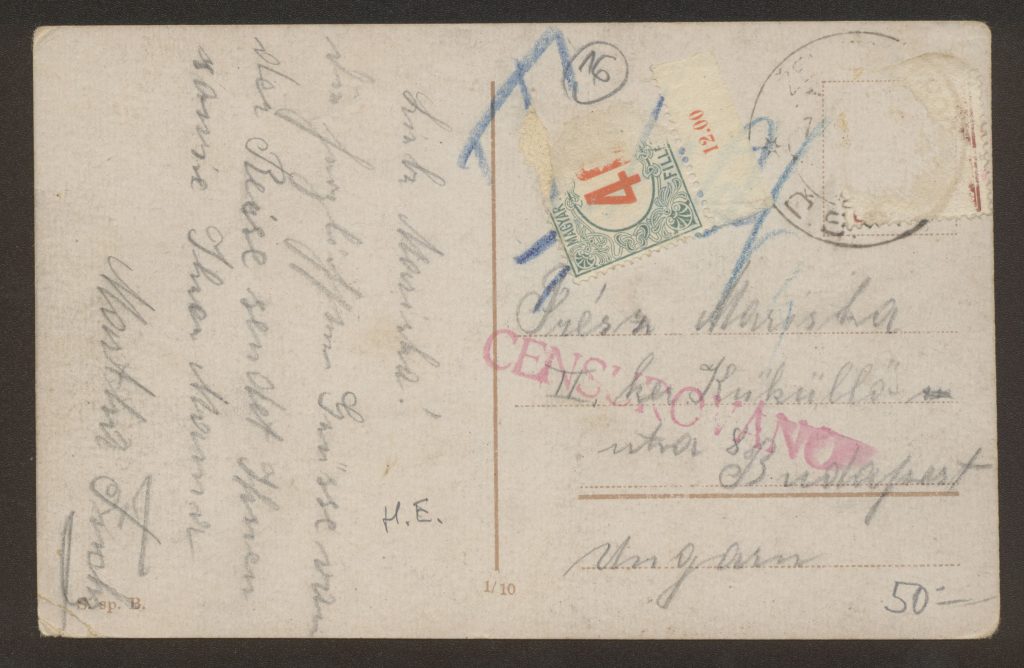 Liebe Mariska!
Die herzlichsten Grüsse von
der Reise sendet Ihnen
sowie Ihrer Mama
Martha
H.E.
S. sp. B.
1/10
16
12.00
MAGYAR
FILL
CENSUROWANO
Mariska
II. ker Küküllő
utca 8
Budapest
Ungarn
50-